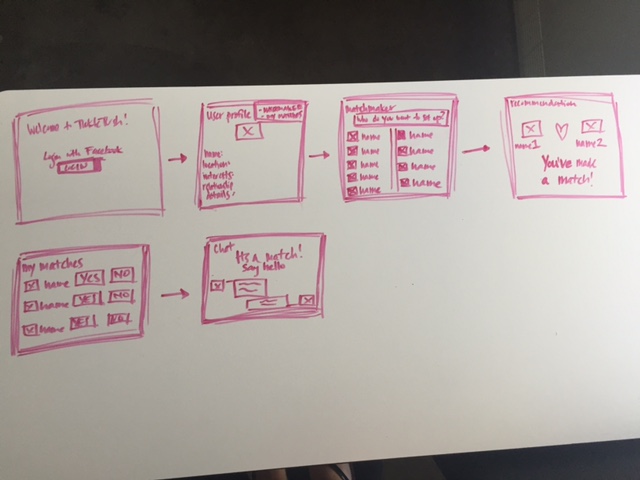 Welcome to
Login with Facebook
LOGIN
User profile
- matchmaker
- my matches
name:
location:
interests:
relationship
details:
matchmaker
Who do you want to set up?
name name
name name
name name
name name
name
recommendation
name1 name2
You've make
a match!
my matches
name YES NO
name YES NO
name YES NO
Chat
It's a match!
Say hello